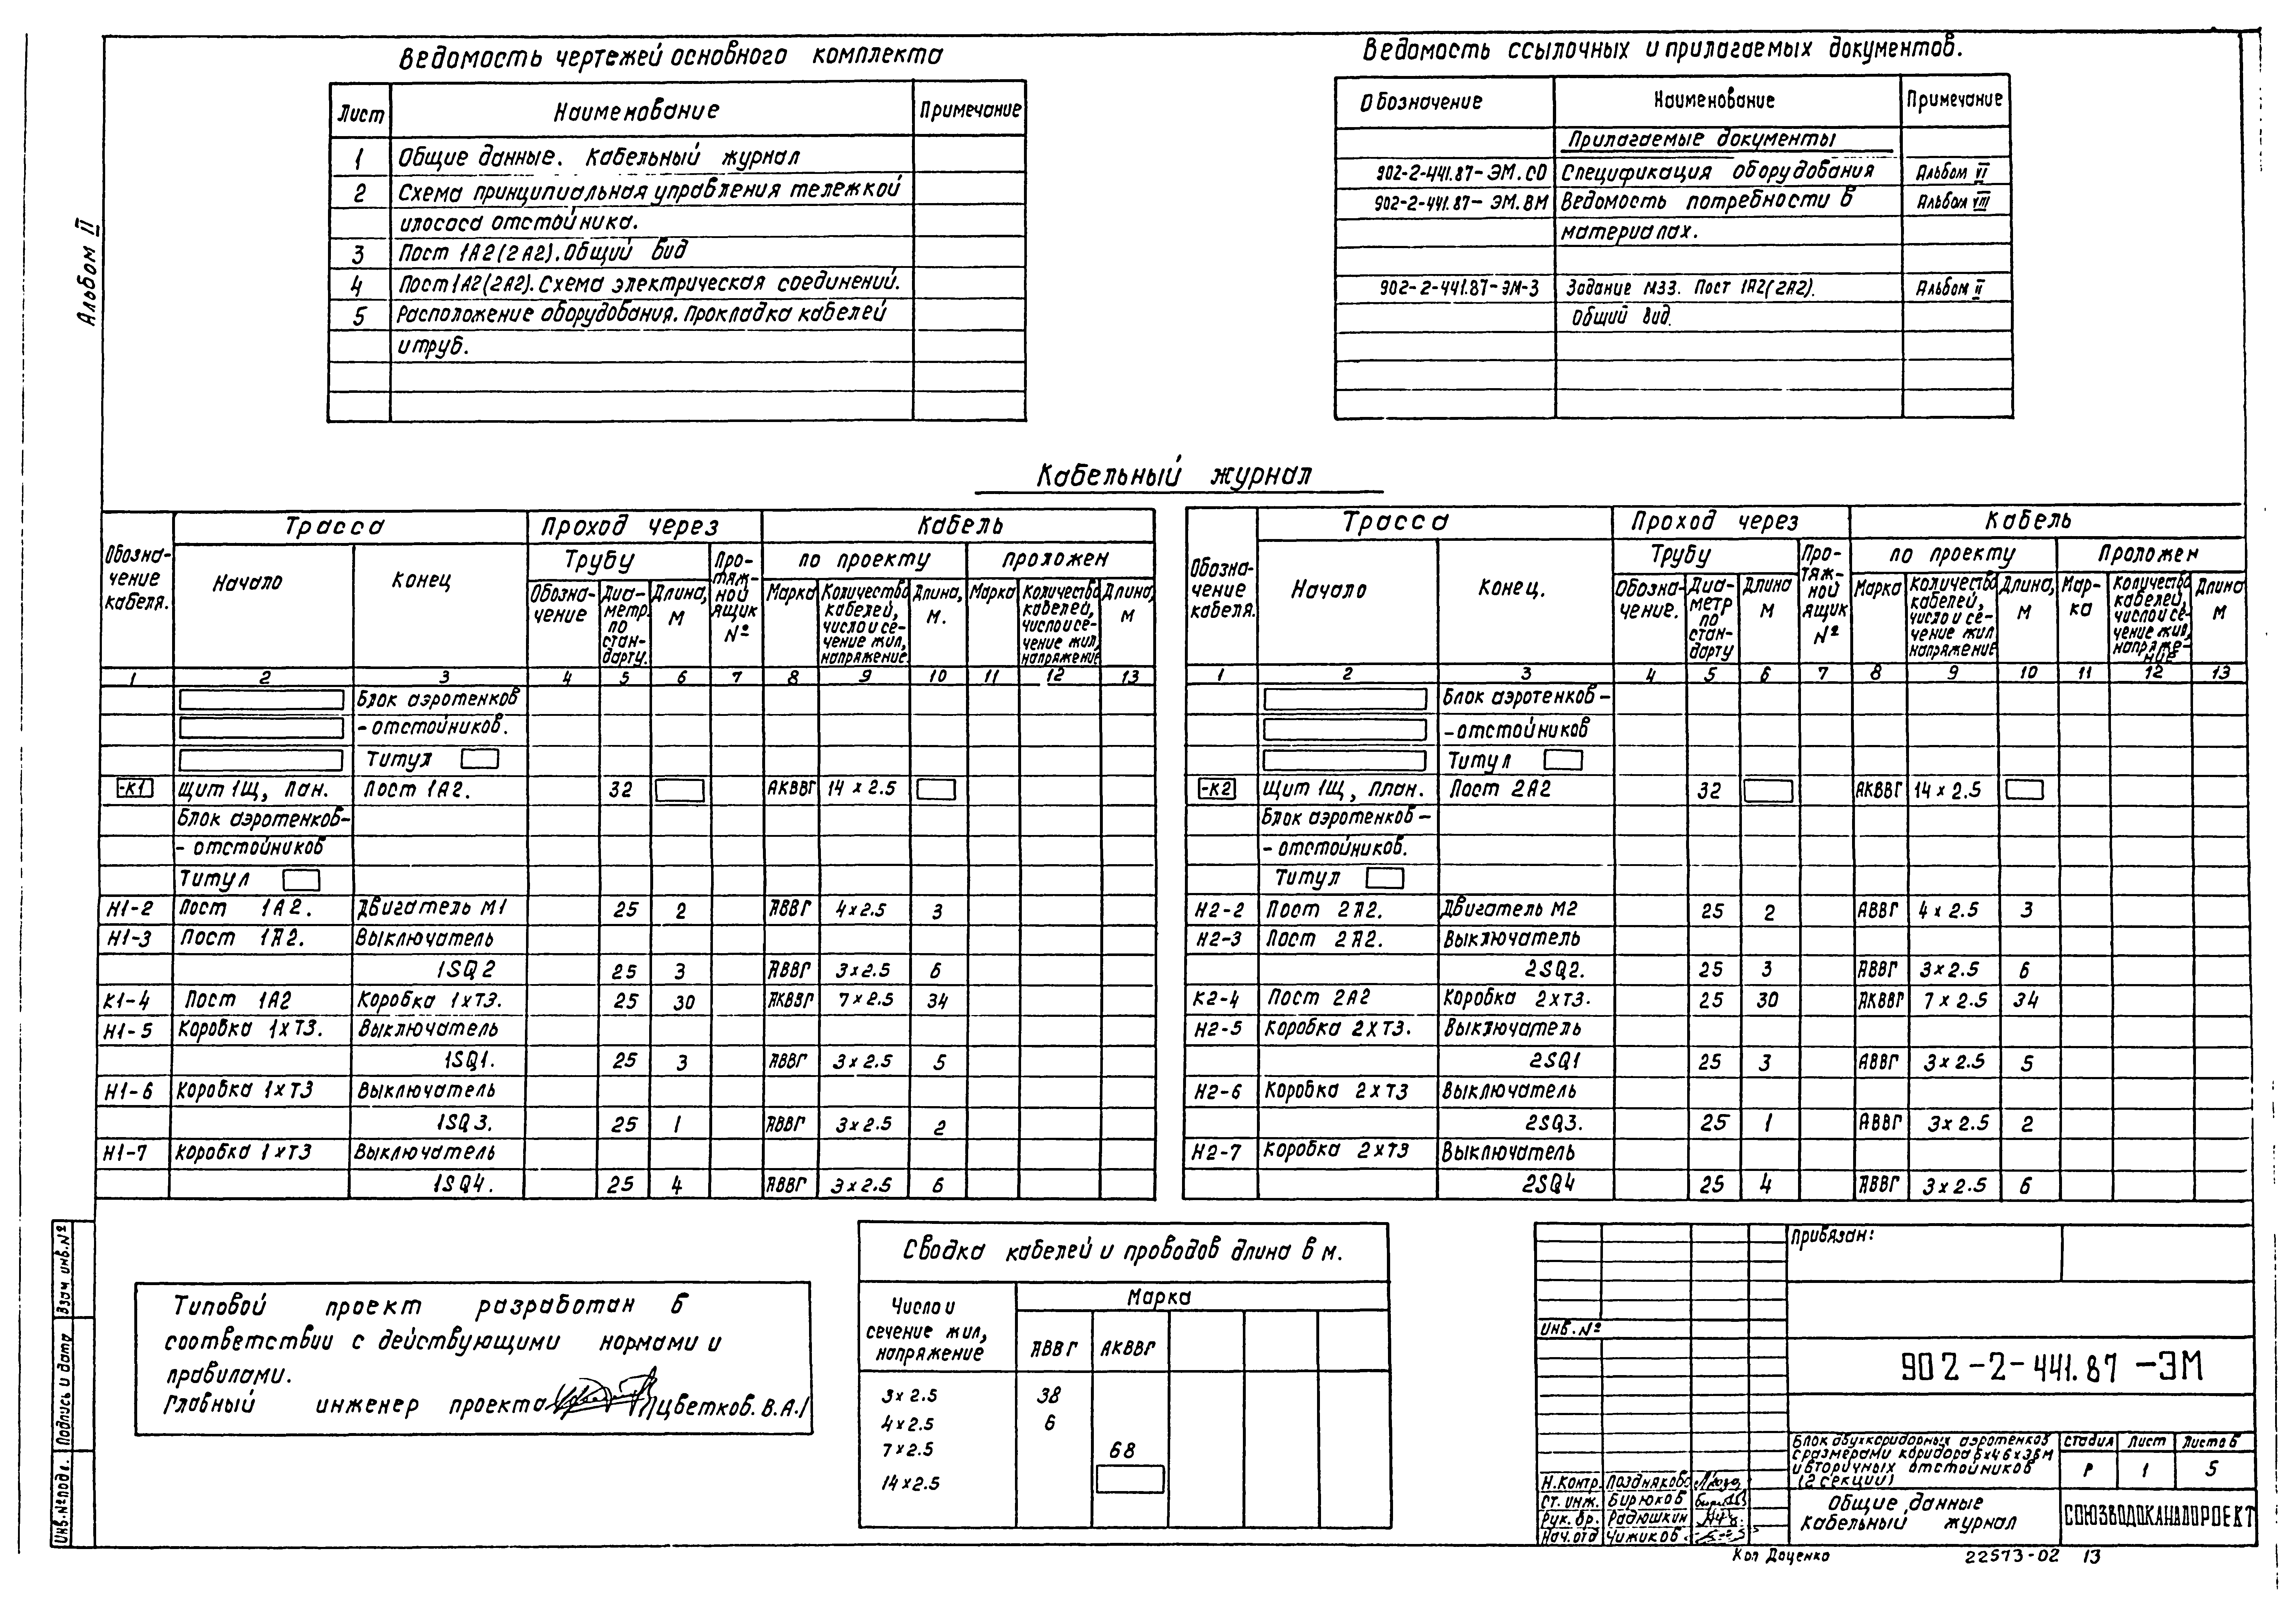 Альбом II
Ведомость чертежей основного комплекта
Лист Наименование Примечание
1 Общие данные. Кабельный журнал
2 Схема принципиальная управления тележкой
илососа отстойника.
3 Пост 1А2(2А2). Общий вид
4 Пост 1А2(2А2). Схема электрическая соединений.
5 Расположение оборудования. Прокладка кабелей
и труб.
Ведомость ссылочных и прилагаемых документов.
Обозначение Наименование Примечание
Прилагаемые документы
902-2-441.87-ЭМ.СО Спецификация оборудования Альбом VI
902-2-441.87-ЭМ.ВМ Ведомость потребности в Альбом VIII
материалах.
902-2-441.87-ЭМ-3 Задание МЗЗ. Пост 1А2(2А2). Альбом II
Общий вид.
Кабельный журнал
Обозна-
чение
кабеля.
Трасса Проход через Кабель
Начало Конец Трубу Про-
тяж-
ной
ящик
№
по проекту проложен
Обозна-
чение
Диа-
метр.
по
стан-
дарту.
Длина,
м
Марка
Количество
кабелей,
число и се-
чение жил,
напряжение.
Длина,
м.
Марка
Количество
кабелей,
число и се-
чение жил,
напряжение
Длина,
м
1 2 3 4 5 6 7 8 9 10 11 12 13
Блок аэротенков
- отстойников.
Титул
-К1 Щит 1Щ, пан. Пост 1А2. 32 АКВВГ 14×2.5
Блок аэротенков-
- отстойников
Титул
Н1-2 Пост 1А2. Двигатель М1 25 2 АВВГ 4×2.5 3
Н1-3 Пост 1А2. Выключатель
1SQ2 25 3 АВВГ 3×2.5 6
К1-4 Пост 1А2 Коробка 1хТ3. 25 30 АКВВГ 7×2.5 34
Н1-5 Коробка 1хТ3. Выключатель
1SQ1. 25 3 АВВГ 3×2.5 5
Н1-6 Коробка 1хТ3 Выключатель
1SQ3. 25 1 АВВГ 3×2.5 2
Н1-7 Коробка 1хТ3 Выключатель
1SQ4. 25 4 АВВГ 3×2.5 6
Обозна-
чение
кабеля.
Трасса Проход через Кабель
Начало Конец. Трубу Про-
тяж-
ной
ящик
№
по проекту Проложен
Обозна-
чение.
Диа-
метр
по
стан-
дарту
Длина
м
Марка
Количество
кабелей,
число и се-
чение жил
напряжение
Длина,
м
Мар-
ка
Количество
кабелей,
число и се-
чение жил,
напряже-
ние
Длина
м
1 2 3 4 5 6 7 8 9 10 11 12 13
Блок аэротенков-
-отстойников
Титул
-К2 Щит 1Щ, план. Пост 2А2 32 АКВВГ 14×2.5
Блок аэротенков-
- отстойников.
Титул
Н2-2 Пост 2А2. Двигатель М2 25 2 АВВГ 4×2.5 3
Н2-3 Пост 2А2. Выключатель
2SQ2. 25 3 АВВГ 3×2.5 6
К2-4 Пост 2А2 Коробка 2хТ3. 25 30 АКВВГ 7×2.5 34
Н2-5 Коробка 2хТ3. Выключатель
2SQ1 25 3 АВВГ 3×2.5 5
Н2-6 Коробка 2хТ3 Выключатель
2SQ3. 25 1 АВВГ 3×2.5 2
Н2-7 Коробка 2хТ3 Выключатель
2SQ4 25 4 АВВГ 3×2.5 6
Типовой проект разработан в
соответствии с действующими нормами и
правилами.
Главный инженер проекта /Цветков.В.А./
Сводка кабелей и проводов длина в м.
Число и
сечение жил,
напряжение
Марка
АВВГ АКВВГ
3×2.5 38
4×2.5 6
7×2.5 68
14×2.5
Привязан:
Инв.№
902-2-441.87-ЭМ
Блок двухкоридорных аэротенков
с размерами коридора 6×4.6×36м
и вторичных отстойников
(2 секции)
Стадия Лист Листов
Р 1 5
Общие данные
Кабельный журнал
СОЮЗВОДОКАНАЛПРОЕКТ
Н.контр. Позднякова
Ст. инж. Бирюков
Рук. бр. Радюшкин
Нач. отд Чижиков
Кол Даценко 22573-02 13
Взам инв.№
Подпись и дата
Инв.№ подл.